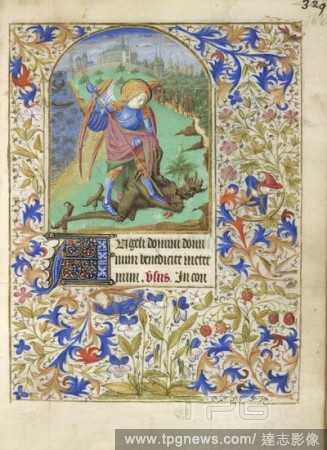 329
Angeli domini domi
num benedicite meter
num, Vsus. In con
TPG
www.tpgnews.com / 達志影像